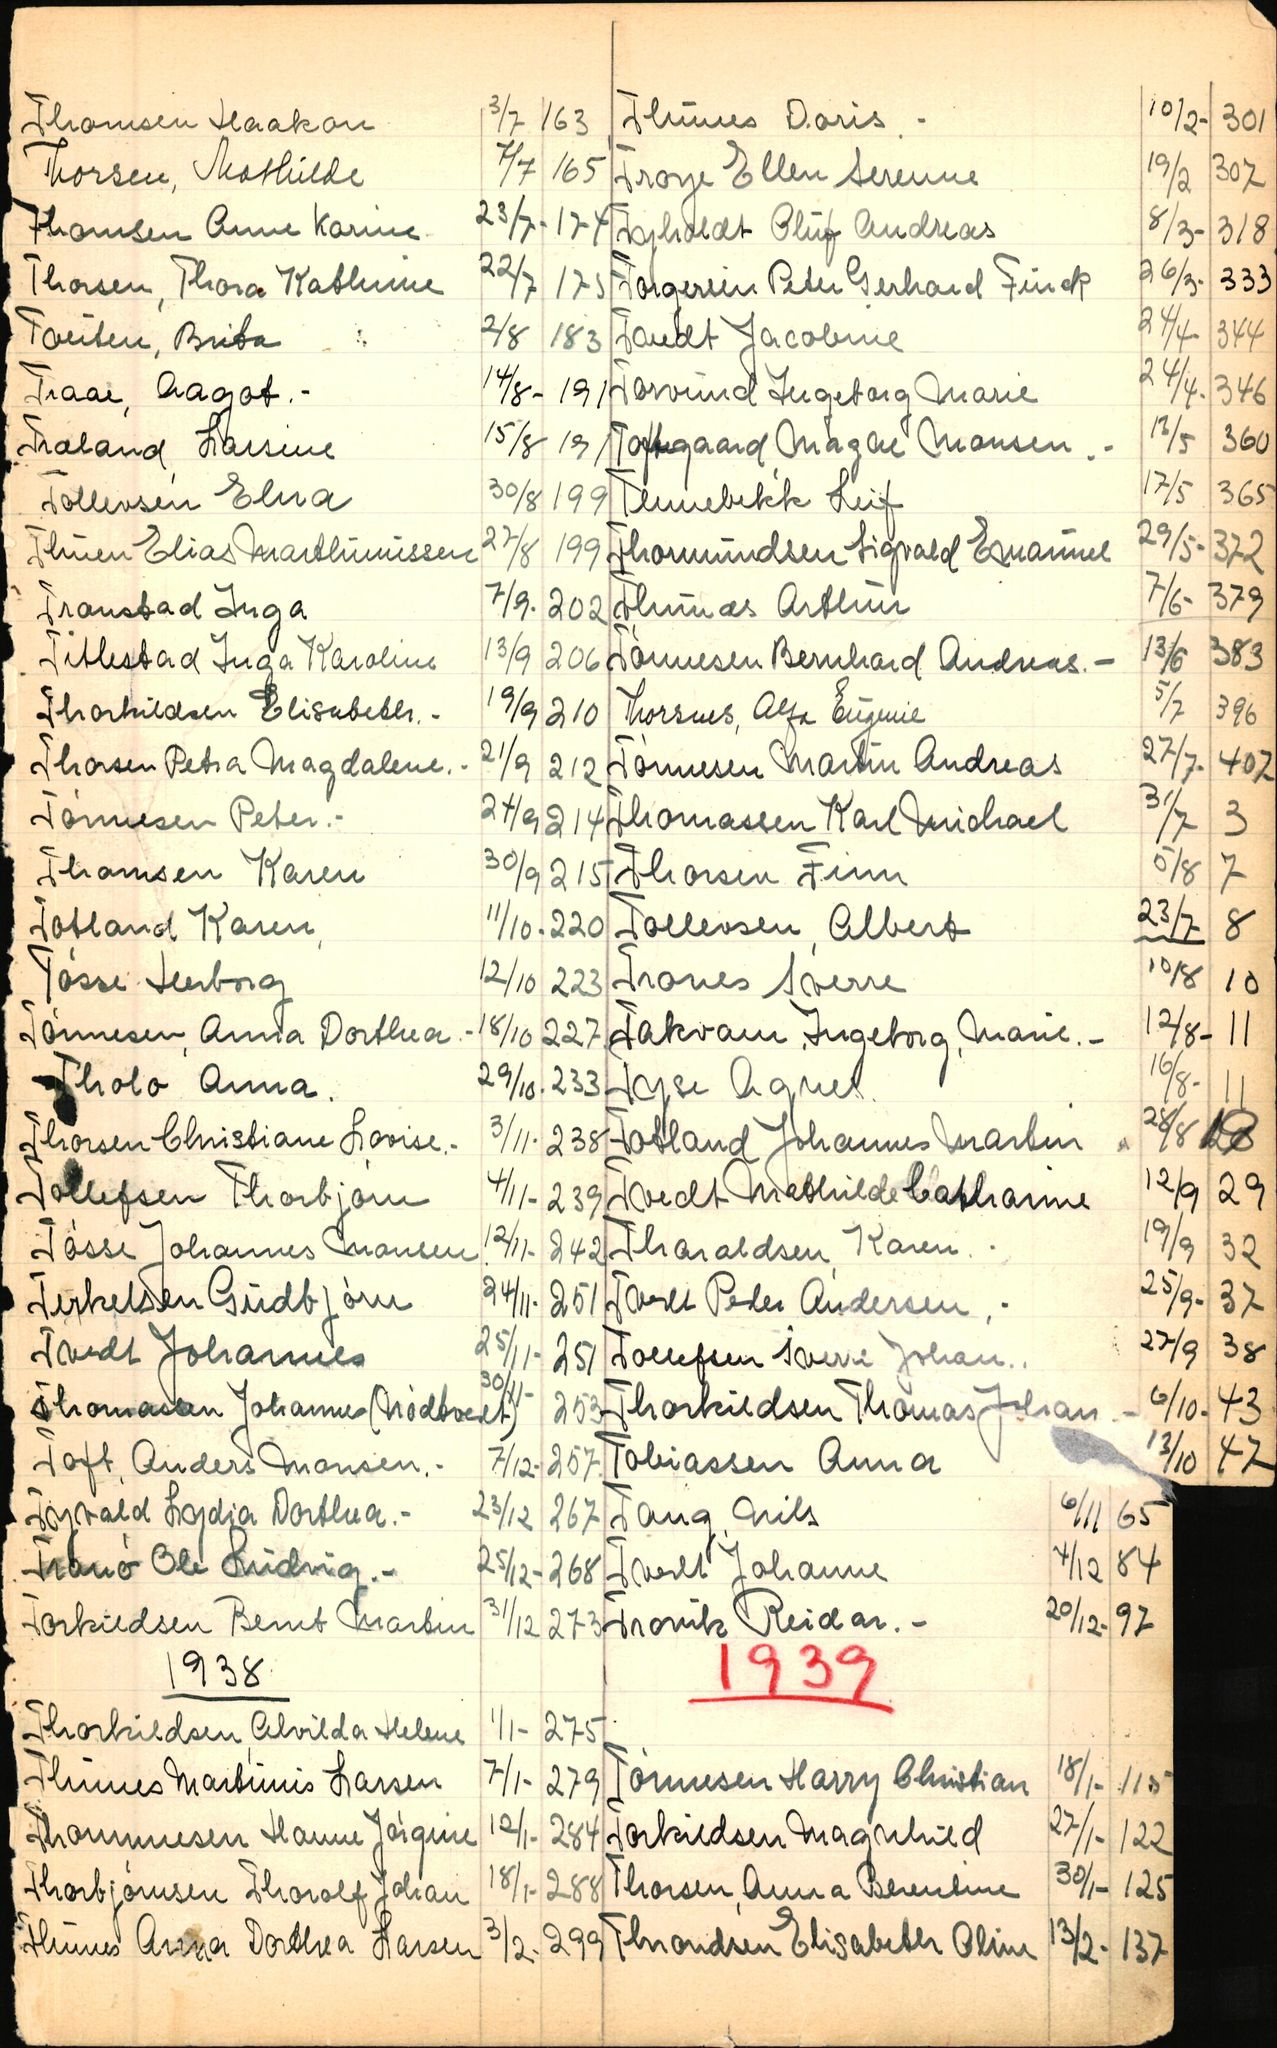 Thomsen Haakon 3/7 163
Thorsen, Mathilde 7/7 165
Thomsen Anne Karine 23/7- 174
Thorsen, Thora Kathrine 22/7 175
Tveiten, Brita 2/8 183
Traae, Aagot.- 14/8- 191
Træland, Larsine 15/8 191
Tollevsen Elna 30/8 199
Thuen Elias Marthinussen 27/8 199
Tronstad Inga 7/9- 202
Titlestad Inga Karoline 13/9 206
Thorkildsen Elisabeth.- 19/9 210
Thorsen Petra Magdalene.- 21/9 212
Tönnesen Peter.- 24/9 214
Thomsen Karen 30/9 215
Totland Karen, 11/10- 220
Tösse Herborg 12/10 223
Tönnesen, Anna Dorthea.- 18/10 227
Tholo Anna. 29/10- 233
Thorsen Christiane Lovise.- 3/11- 238
Tollefsen Thorbjörn 4/11- 239
Tösse Johannes Monsen 12/11- 242
Terkelsen Gudbjörn 24/11- 251
Tvedt Johannes 25/11- 251
Thomassen Johanne (Nödtvedt) 30/11- 253
Toft, Anders Monsen.- 7/12- 257
Lydia Dorthea.- 23/12 267
Tranö Ole Ludvig.- 25/12- 268
Torkildsen Bernt Martin 31/12 273
1938
Thorkildsen, Alvilda Helene 1/1- 275
Thunes Martinus Larsen 7/1- 279
Thommesen Hanne Jörgine 12/1- 284
Thorbjörnsen Thorolf Johan 18/1- 288
Thunes Anna Dorthea Larsen 3/2- 299
Thunes Doris.- 10/2- 301
Troye Ellen Serenne 19/2 307
Oluf Andreas 8/3- 318
Torgersen Peter Gerhard Finck 26/3- 333
Tvedt Jacobine 24/4- 344
Torvund Ingeborg Marie 24/4- 346
Toftegaard Magne Monsen.- 13/5 360
Tennebekk Leif 17/5 365
Thormundsen Sigvald Emanuel 29/5- 372
Thunæs Arthur 7/6- 379
Tönnesen Bernhard Andreas.- 13/6 383
Thorsnes, Alfa Eugenie 5/7 396
Tönnesen Martin Andreas 27/7- 407
Thomassen Karl Michael 31/7 3
Thorsen Finn 5/8 7
Tollevsen, Albert 23/7 8
Trones Sverre 10/8 10
Takvam, Ingeborg, Marie.- 12/8- 11
Tyse Agnes. 16/8- 11
Totland Johannes Martin 28/8
Tvedt Mathilde Catharine 12/9 29
Tharaldsen, Karen.- 19/9 32
Tvedt Peder Andersen,- 25/9- 37
Tollefsen Sverre Johan.. 27/9 38
Thorkildsen Thomas Johan.- 6/10- 43
Tobiassen Anna 13/10 47
Tang, Nils 6/11 65
Tvedt Johanne 4/12 84
Trovik Reidar.- 20/12- 97
1939
Tönnesen Harry Christian 18/1- 115
Torkildsen Magnhild 27/1- 122
Thorsen, Anna Berentine 30/1- 125
Throndsen Elisabeth Oline 13/2- 137